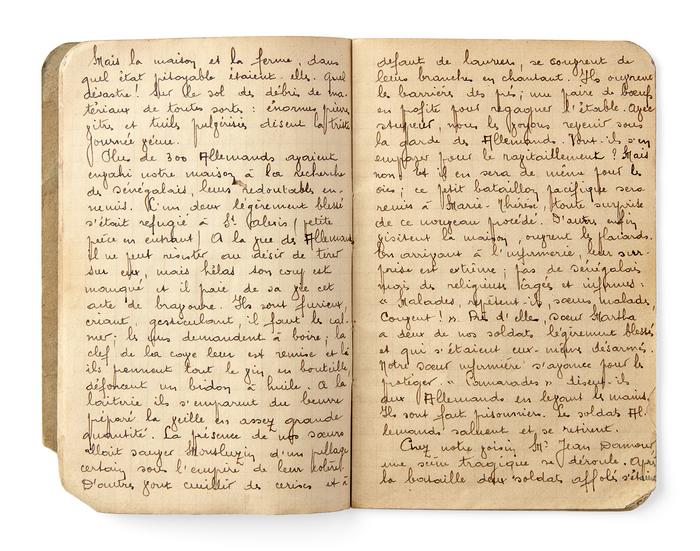 Mais la maison et la ferme, dans
quel état pitoyable étaient-elles. Quel
désastre! Sur le sol des débris de ma-
tériaux de toutes sortes : énormes pierres,
vitres et tuiles pulvérisés disent la triste
journée vécue.
Plus de 300 Allemands avaient
envahi notre maison à la recherche
de sénégalais, leurs redoutables en-
nemis. L'un deux légèrement blessé
s'était refugié à St Alexis (petite
pièce en entrant) A la vue des Allemands
il ne peut resister au désir de tirer
sur eux, mais hélas son coup est
manqué et il paie de sa vie cet
acte de bravoure. Ils sont furieux,
criant, gesticulant, il faut les cal-
mer; ils nous demandent à boire; la
clef de la cave leur est remise et là
ils prennent tout le vin en bouteille,
défoncent un bidon à huile. A la
laiterie ils s'emparent du beurre
préparé la veille en assez grande
quantité. La présence de nos sœurs
allait sauver Montluzin d'un pillage
certain sous l'empire de leur colère.
D'autres vont cueillir des cerises et à
défaut de lauriers, se couvrent de
leurs branches en chantant. Ils ouvrent
les barrières des prés; une paire de bœufs
en profite pour regagner l'étable. Avec
stupeur, nous les voyons revenir sous
la garde des Allemands. Vont-ils s'en
emparer pour le ravitaillement? Mais
non et il en sera de même pour les
oies; ce petit bataillon pacifique sera
remis à Marie-Thérèse, toute surprise
de ce nouveau procédé. D'autres enfin
visitent la maison, ouvrent les placards.
En arrivant à l'infirmerie, leur sur-
prise est extrême; pas de sénégalais
mais des religieuses âgées et infirmes:
« Malades, répètent-ils, sœurs malades,
Couvent! ». Près d'elle, sœur Martha
a deux de nos soldats légèrement blessés
et qui s'étaient eux-mêmes désarmés.
Notre sœur infirmière s'avance pour les
protéger. « Camarades » disent-ils
aux Allemands en levant les mains.
Ils sont fait prisonniers. Les soldats Al-
lemands saluent et se retirent.
Chez notre voisin, Mr Jean Damour
une scène tragique se déroule. Après
la bataille deux soldats affolés s'étaient